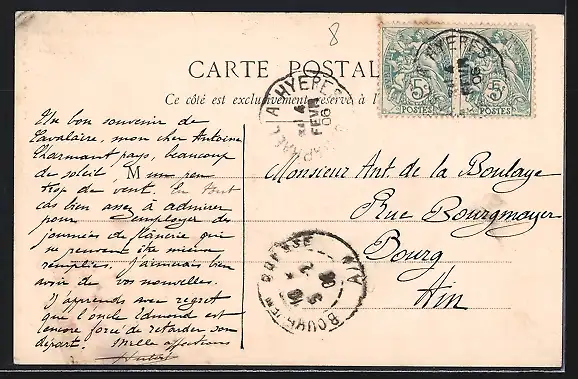 8
CARTE POSTALE
Ce côté est exclusivement réservé à l
5c 5c
POSTES POSTES
HYERES
FEVR
06
Un bon souvenir de
Cavalaire, mon cher Antoine
Charmant pays, beaucoup
de soleil, M un peu
trop de vent. En tout
cas bien assez à admirer
pour employer des
journées de flânerie qui
ne peuvent être mieux
remplies. J'aimerais bien
avoir de vos nouvelles.
J'apprends avec regret
que l'oncle Edmond est
encore forcé de retarder son
départ. Mille affections
Monsieur Ant. de la Boulaye
Rue Bourgmayer
Bourg
Ain
BOURG BRESSE AIN